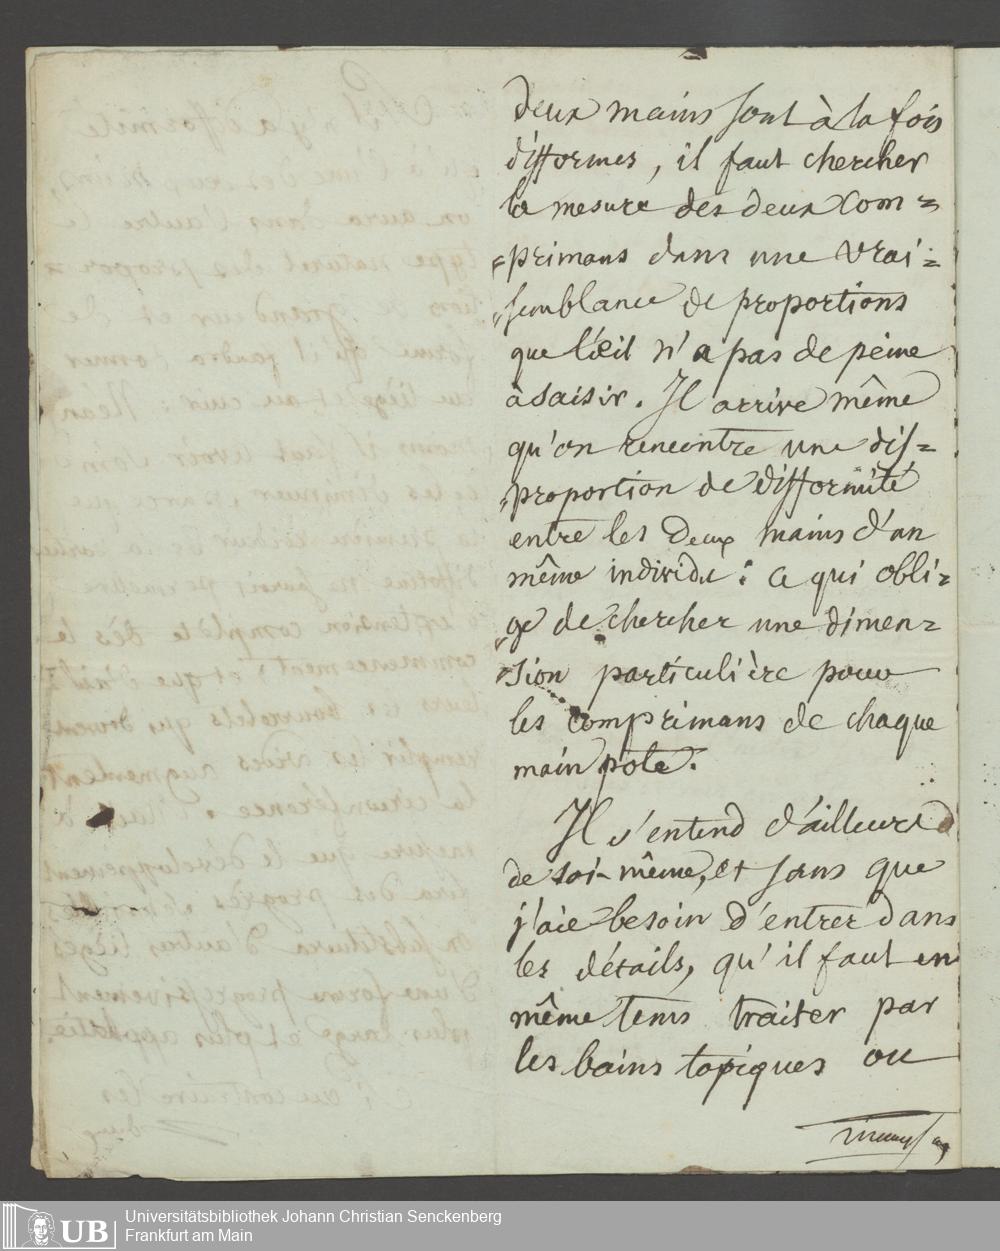 deux mains sont à la fois
difformes, il faut chercher
la mesure des deux Com=
=primans dans une vrai=
"semblance de proportions
que l'œil n'a pas de peine
à saisir. Il arrive même
qu'on rencontre une dis=
"proportion de difformité
entre les Deux mains d'un
même individu: ce qui obli=
"ge de chercher une dimen=
"sion particulière pour
les comprimans de chaque
main pote.
Il s'entend d'ailleurs
de soi-même, et sans que
j'aie besoin d'entrer dans
les détails, qu'il faut en
même tems traiter par
les bains topiques ou
UB
Universitätsbibliothek Johann Christian Senckenberg
Frankfurt am Main